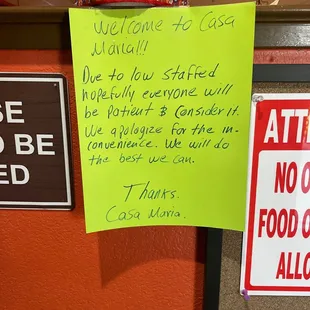 Welcome to Casa
Maria!!!
Due to low staffed
hopefully everyone will
be Patient & Consider it.
We apologize for the in-
convenience. We will do
the best we can.
Thanks.
Casa Maria.
SE
O BE
ED
ATT
NO O
FOOD O
ALLO